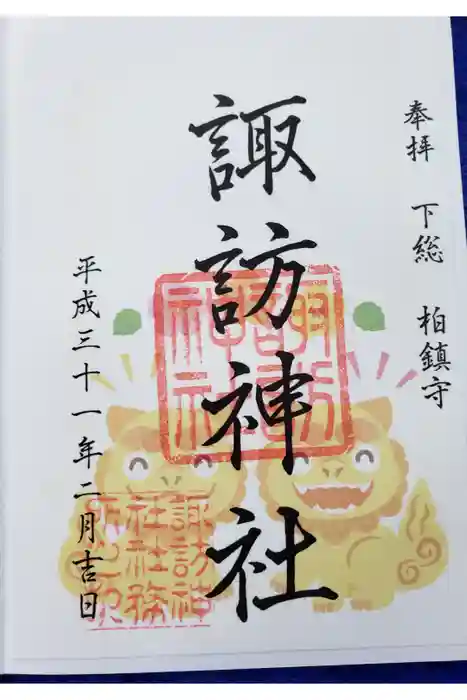 奉拝 下総 柏鎮守
諏訪神社
平成三十一年二月吉日
諏訪神社
諏訪神
社社務
所之印